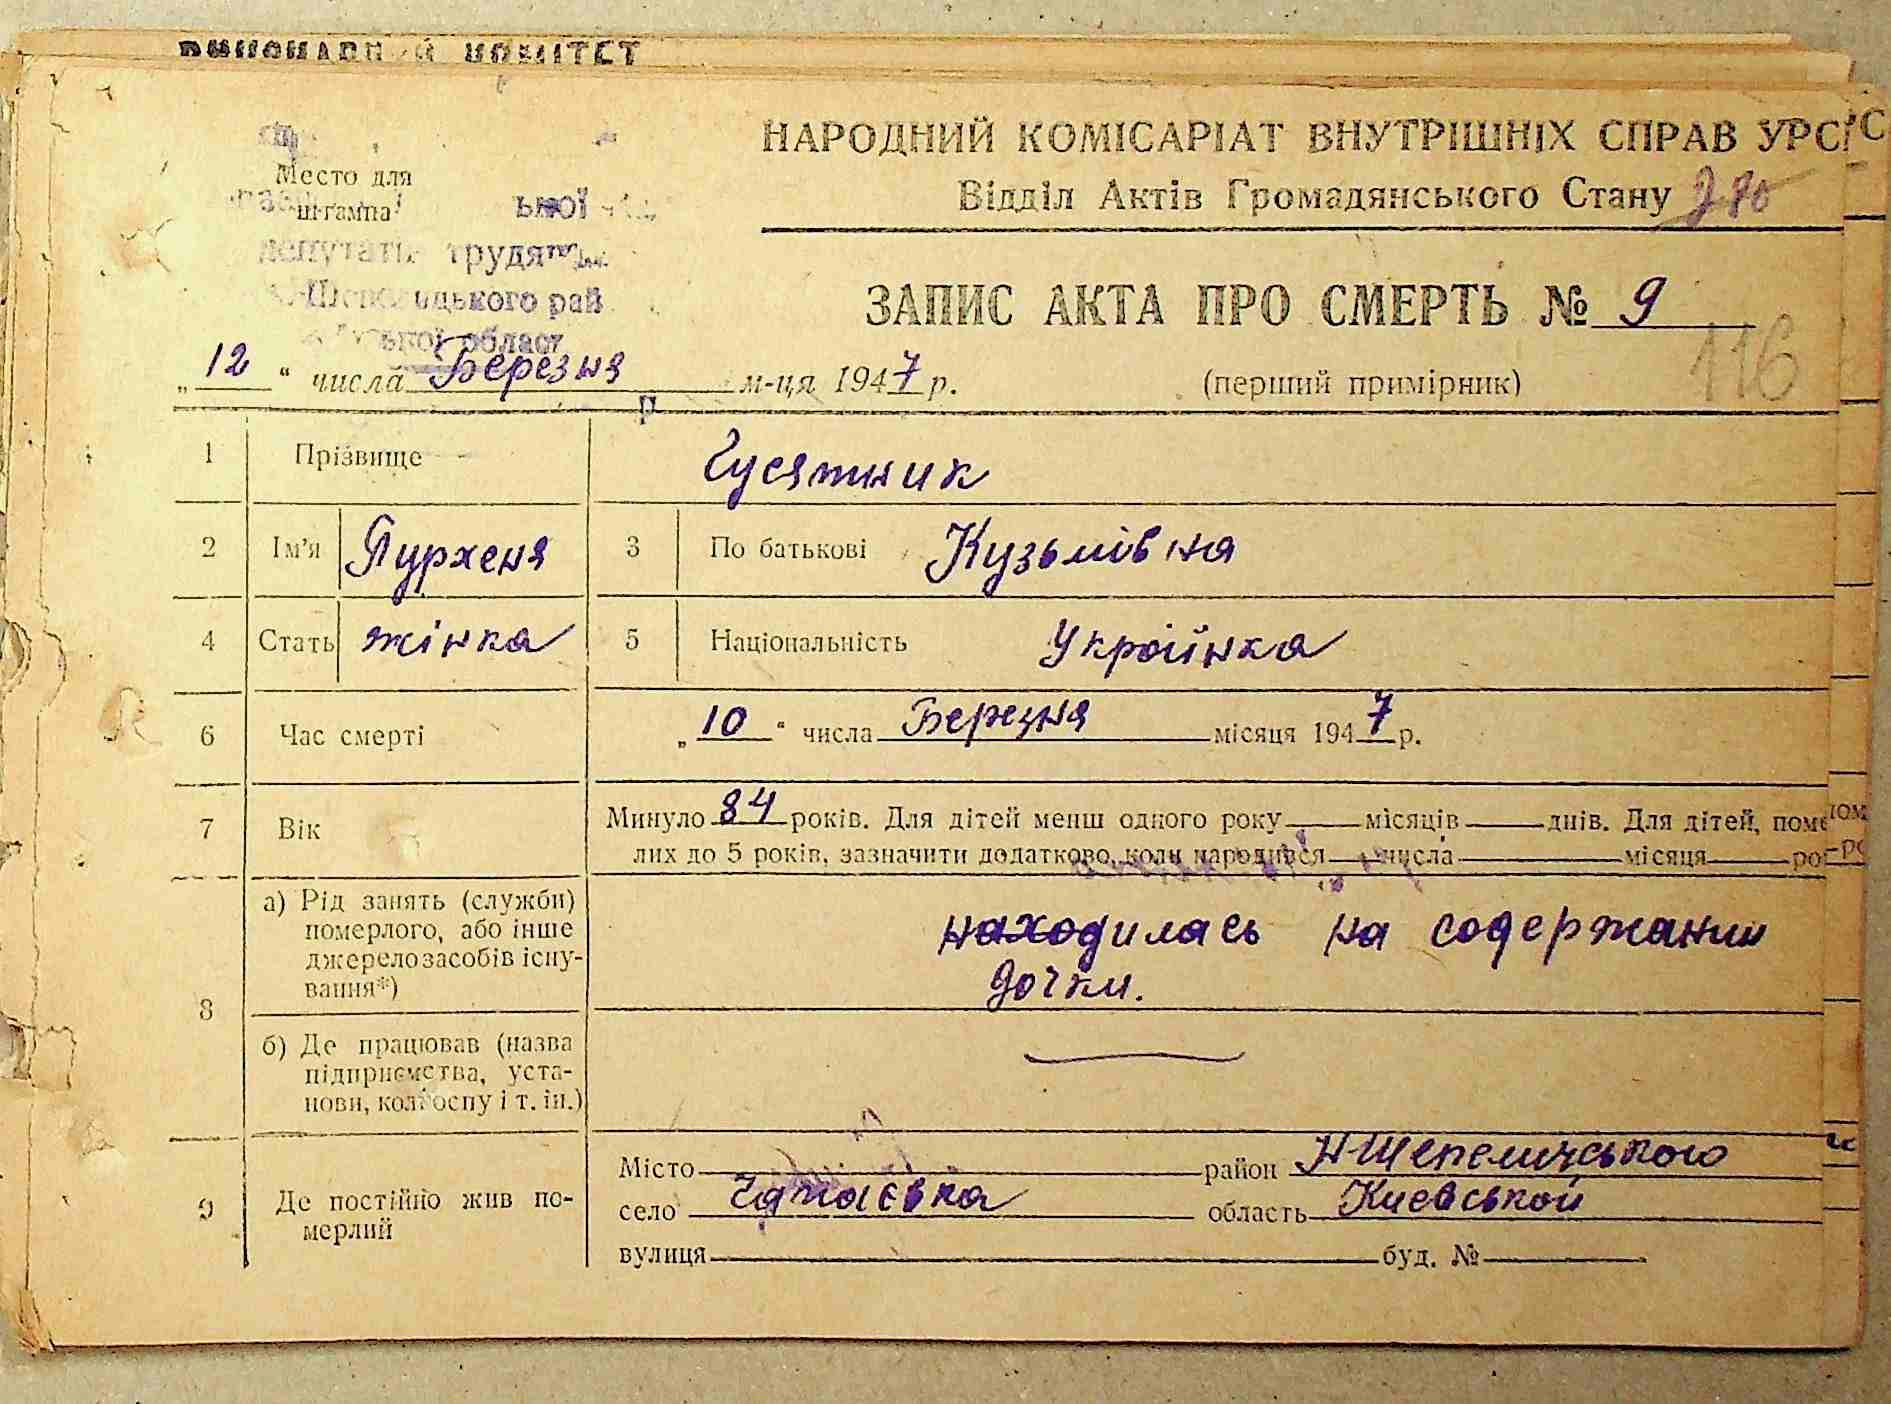 ВИКОНАВЧИЙ КОМІТЕТ
НАРОДНИЙ КОМІСАРІАТ ВНУТРІШНІХ СПРАВ УРСР
Відділ Актів Громадянського Стану
Место для
штампа
ької
депутатів трудящих
цького рай
ької област
ЗАПИС АКТА ПРО СМЕРТЬ № 9
116
„12“ числа Березня м-ця 1947 р. (перший примірник)
1 Прізвище Гусятник
2 Ім'я Пурхеня 3 По батькові Кузьмівна
4 Стать жінка 5 Національність Україйнка
6 Час смерті „10“ числа Березня місяця 1947 р.
7 Вік Минуло 84 років. Для дітей менш одного року місяців днів. Для дітей, поме
лих до 5 років, зазначити додатково, коли народився числа місяця ро
8 а) Рід занять (служби) померлого, або інше джерело засобів існування*) находилась на содержании
дочки.
б) Де працював (назва підприємства, установи, колгоспу і т. ін.)
9 Де постійно жив померлий Місто район Н-Шепеличського
село Чапаєвка область Киевськой
вулиця буд. №